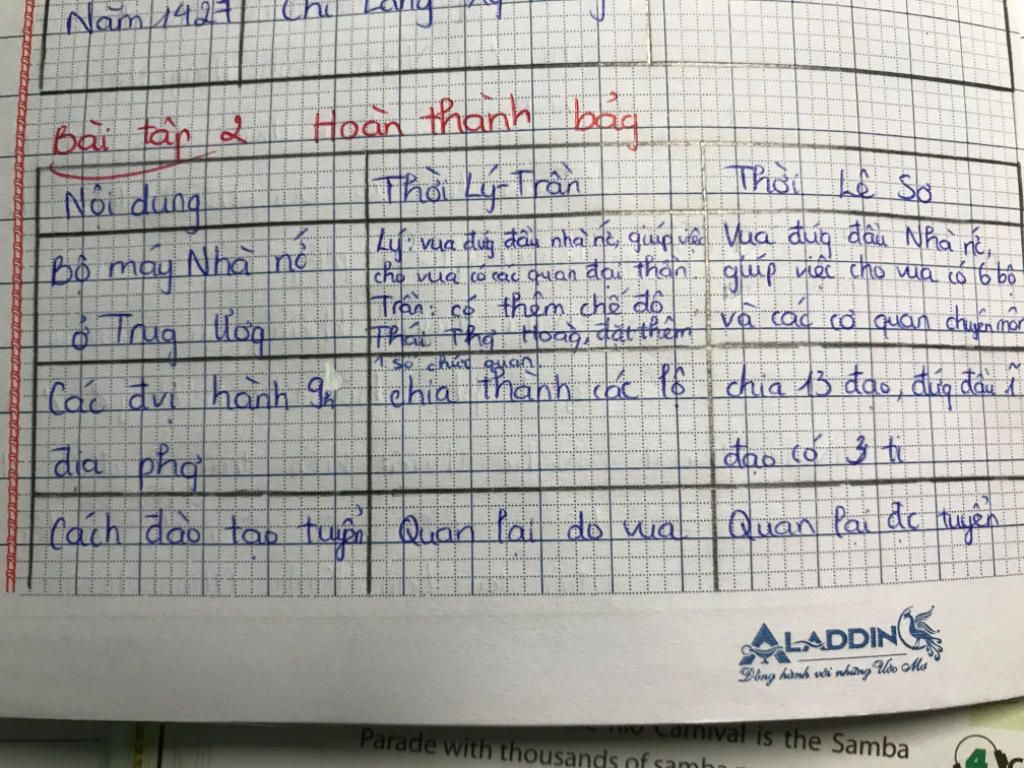 Năm 1427 Chi Lăng
Bài tập 2 Hoàn thành bảg
Nội dung
Thời Lý-Trần
Thời Lê Sơ
Bộ máy Nhà nc
ở Trug Ươg
Lý: vua đứg đầu nhà nc, giúp việc
cho vua có các quan đại thần
Trần: có thêm chế độ
Thái Thg Hoàg, đặt thêm
1 số chức quan
Vua đứg đầu Nhà nc,
giúp việc cho vua có 6 bộ
và các cơ quan chuyên môn
Các đvị hành 9h
địa phg
chia thành các lộ
chia 13 đạo, đứg đầu
đạo có 3 ti
Cách đào tạo tuyển
Quan lại do vua
Quan lại đc tuyển
ALADDIN
Đồng hành với những Ước Mơ
Carnival is the Samba
Parade with thousands of samba
4